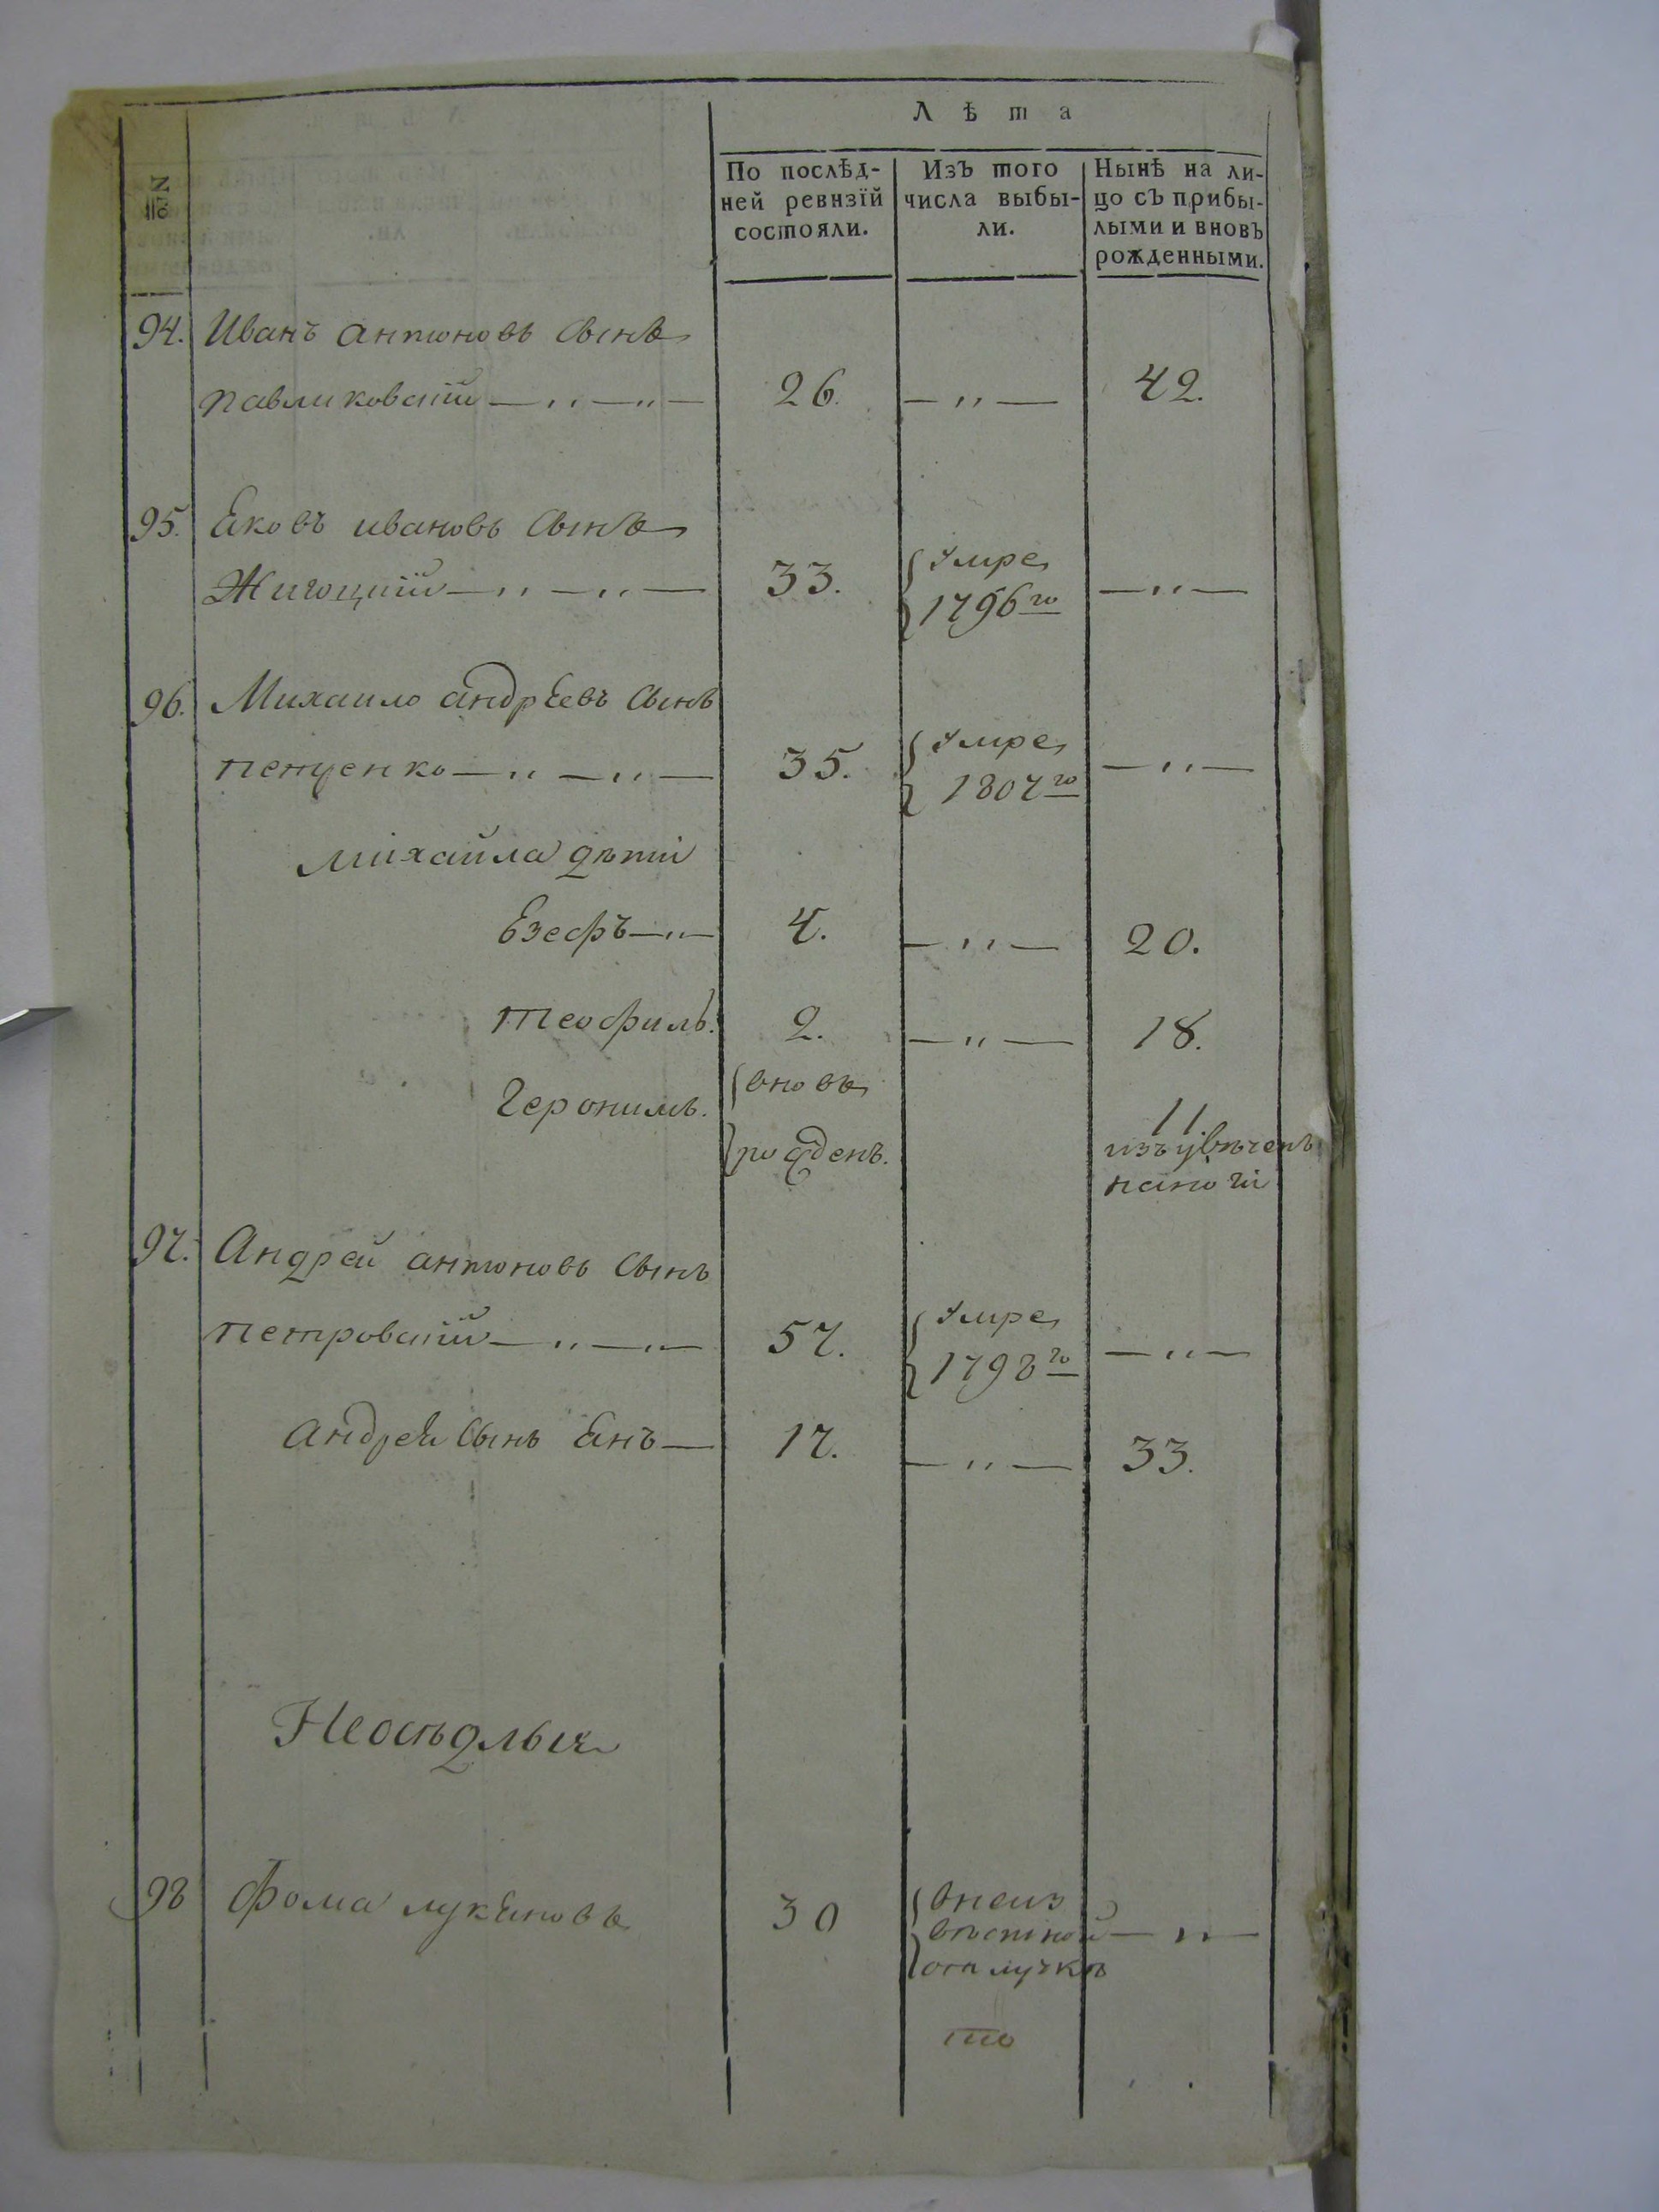 Лѣта
№
По послѣд-
ней ревизїй
состояли.
Изъ того
числа выбы-
ли.
Нынѣ на ли-
цо съ прибы-
лыми и вновь
рожденными.
94. Иванъ антоновъ сынъ
павликовский — „ — „ — 26. — „ — 42.
95. Яковъ ивановъ сынъ
Жигоцкій — „ — „ — 33. умре 1796го — „ —
96. Михаило андреевъ сынъ
пенценко — „ — „ — 35. умре 1807го — „ —
михайла дѣти
Езефъ — „ — 4. — „ — 20.
теофилъ. 2. — „ — 18.
Геронимъ. вновь рожденъ. 11
изъувѣченъ
наноги
97. Андрей антоновъ сынъ
петровскій — „ — „ — 57. умре 1798го — „ —
андрея сынъ Янъ — 17. — „ — 33.
Неосѣдлыя
98 Фома лукяновъ 30 внеиз
вѣстной — „ —
отлучкѣ